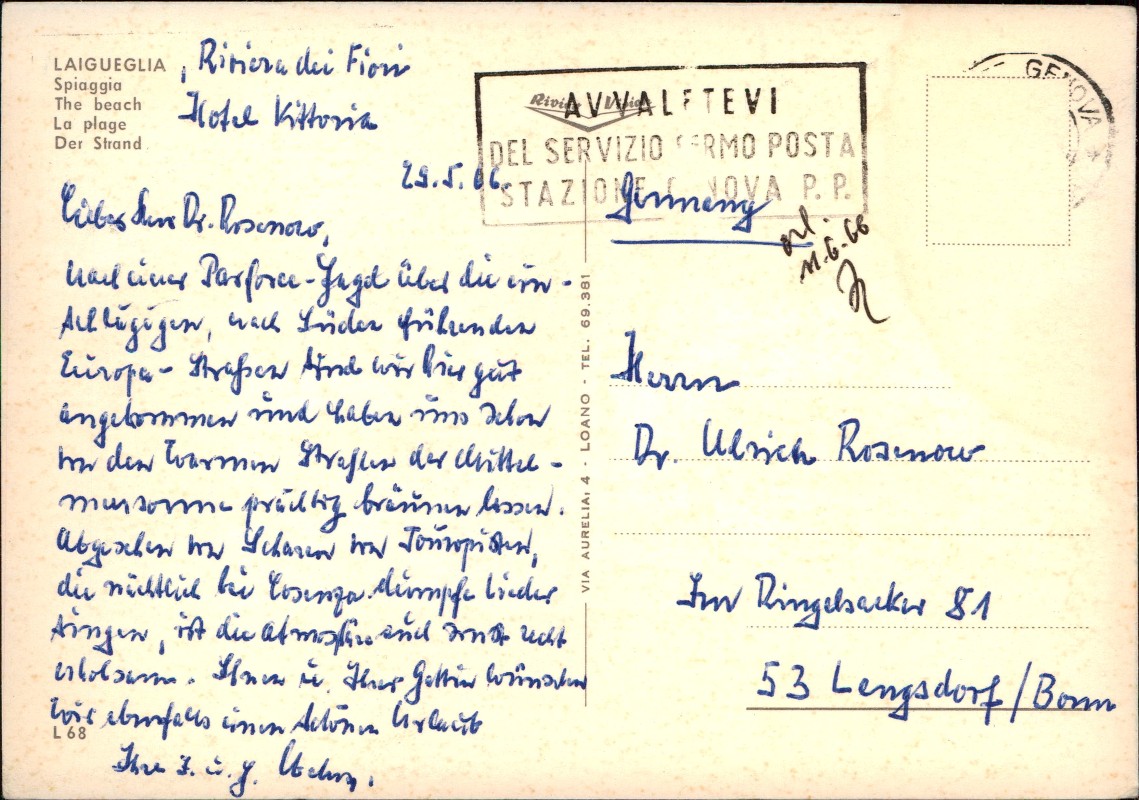 LAIGUEGLIA, Riviera dei Fiori
Spiaggia
The beach
La plage
Der Strand
Hotel Vittoria
29.5.66
Lieber Herr Dr. Rosenow,
nach einer Parforce-Jagd über die ein-
schlägigen, nach Süden führenden
Europa-Straßen sind wir hier gut
angekommen und haben uns schon
von den warmen Strahlen der Mittel-
meersonne prächtig bräunen lassen.
Abgesehen von Scharen von Touropisten,
die nächtlich bei Cosenza dumpfe Lieder
singen, ist die Atmosphäre auch sonst recht
erholsam. Ihnen u. Ihrer Gattin wünschen
wir ebenfalls einen schönen Urlaub
L 68
Ihre J. u. G.
VIA AURELIA, 4 - LOANO - TEL. 69.381
AVVALETEVI
DEL SERVIZIO FERMO POSTA
STAZIONE GENOVA P.P.
GENOVA
Germany
11.6.66
Herrn
Dr. Ulrich Rosenow
Im Ringelsacker 81
53 Lengsdorf/Bonn